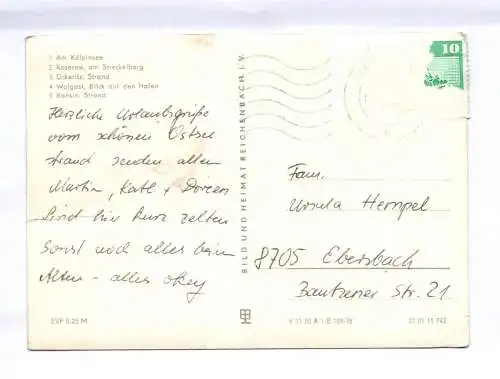 1 Am Kölpinsee
2 Koserow, am Streckelberg
3 Ückeritz, Strand
4 Wolgast, Blick auf den Hafen
5 Bansin, Strand
Herzliche Urlaubsgrüße
vom schönen Ostsee
strand senden allen
Martin, Katl + Doreen
Sind hier kurz zelten
Sonst noch alles beim
Alten - alles okey
EVP 0,25 M
BILD UND HEIMAT REICHENBACH I. V.
10
Fam.
Ursula Hempel
8705 Ebersbach
Bautzener Str. 21
V 11 50 A 1/B 109/76
01 01 11 742